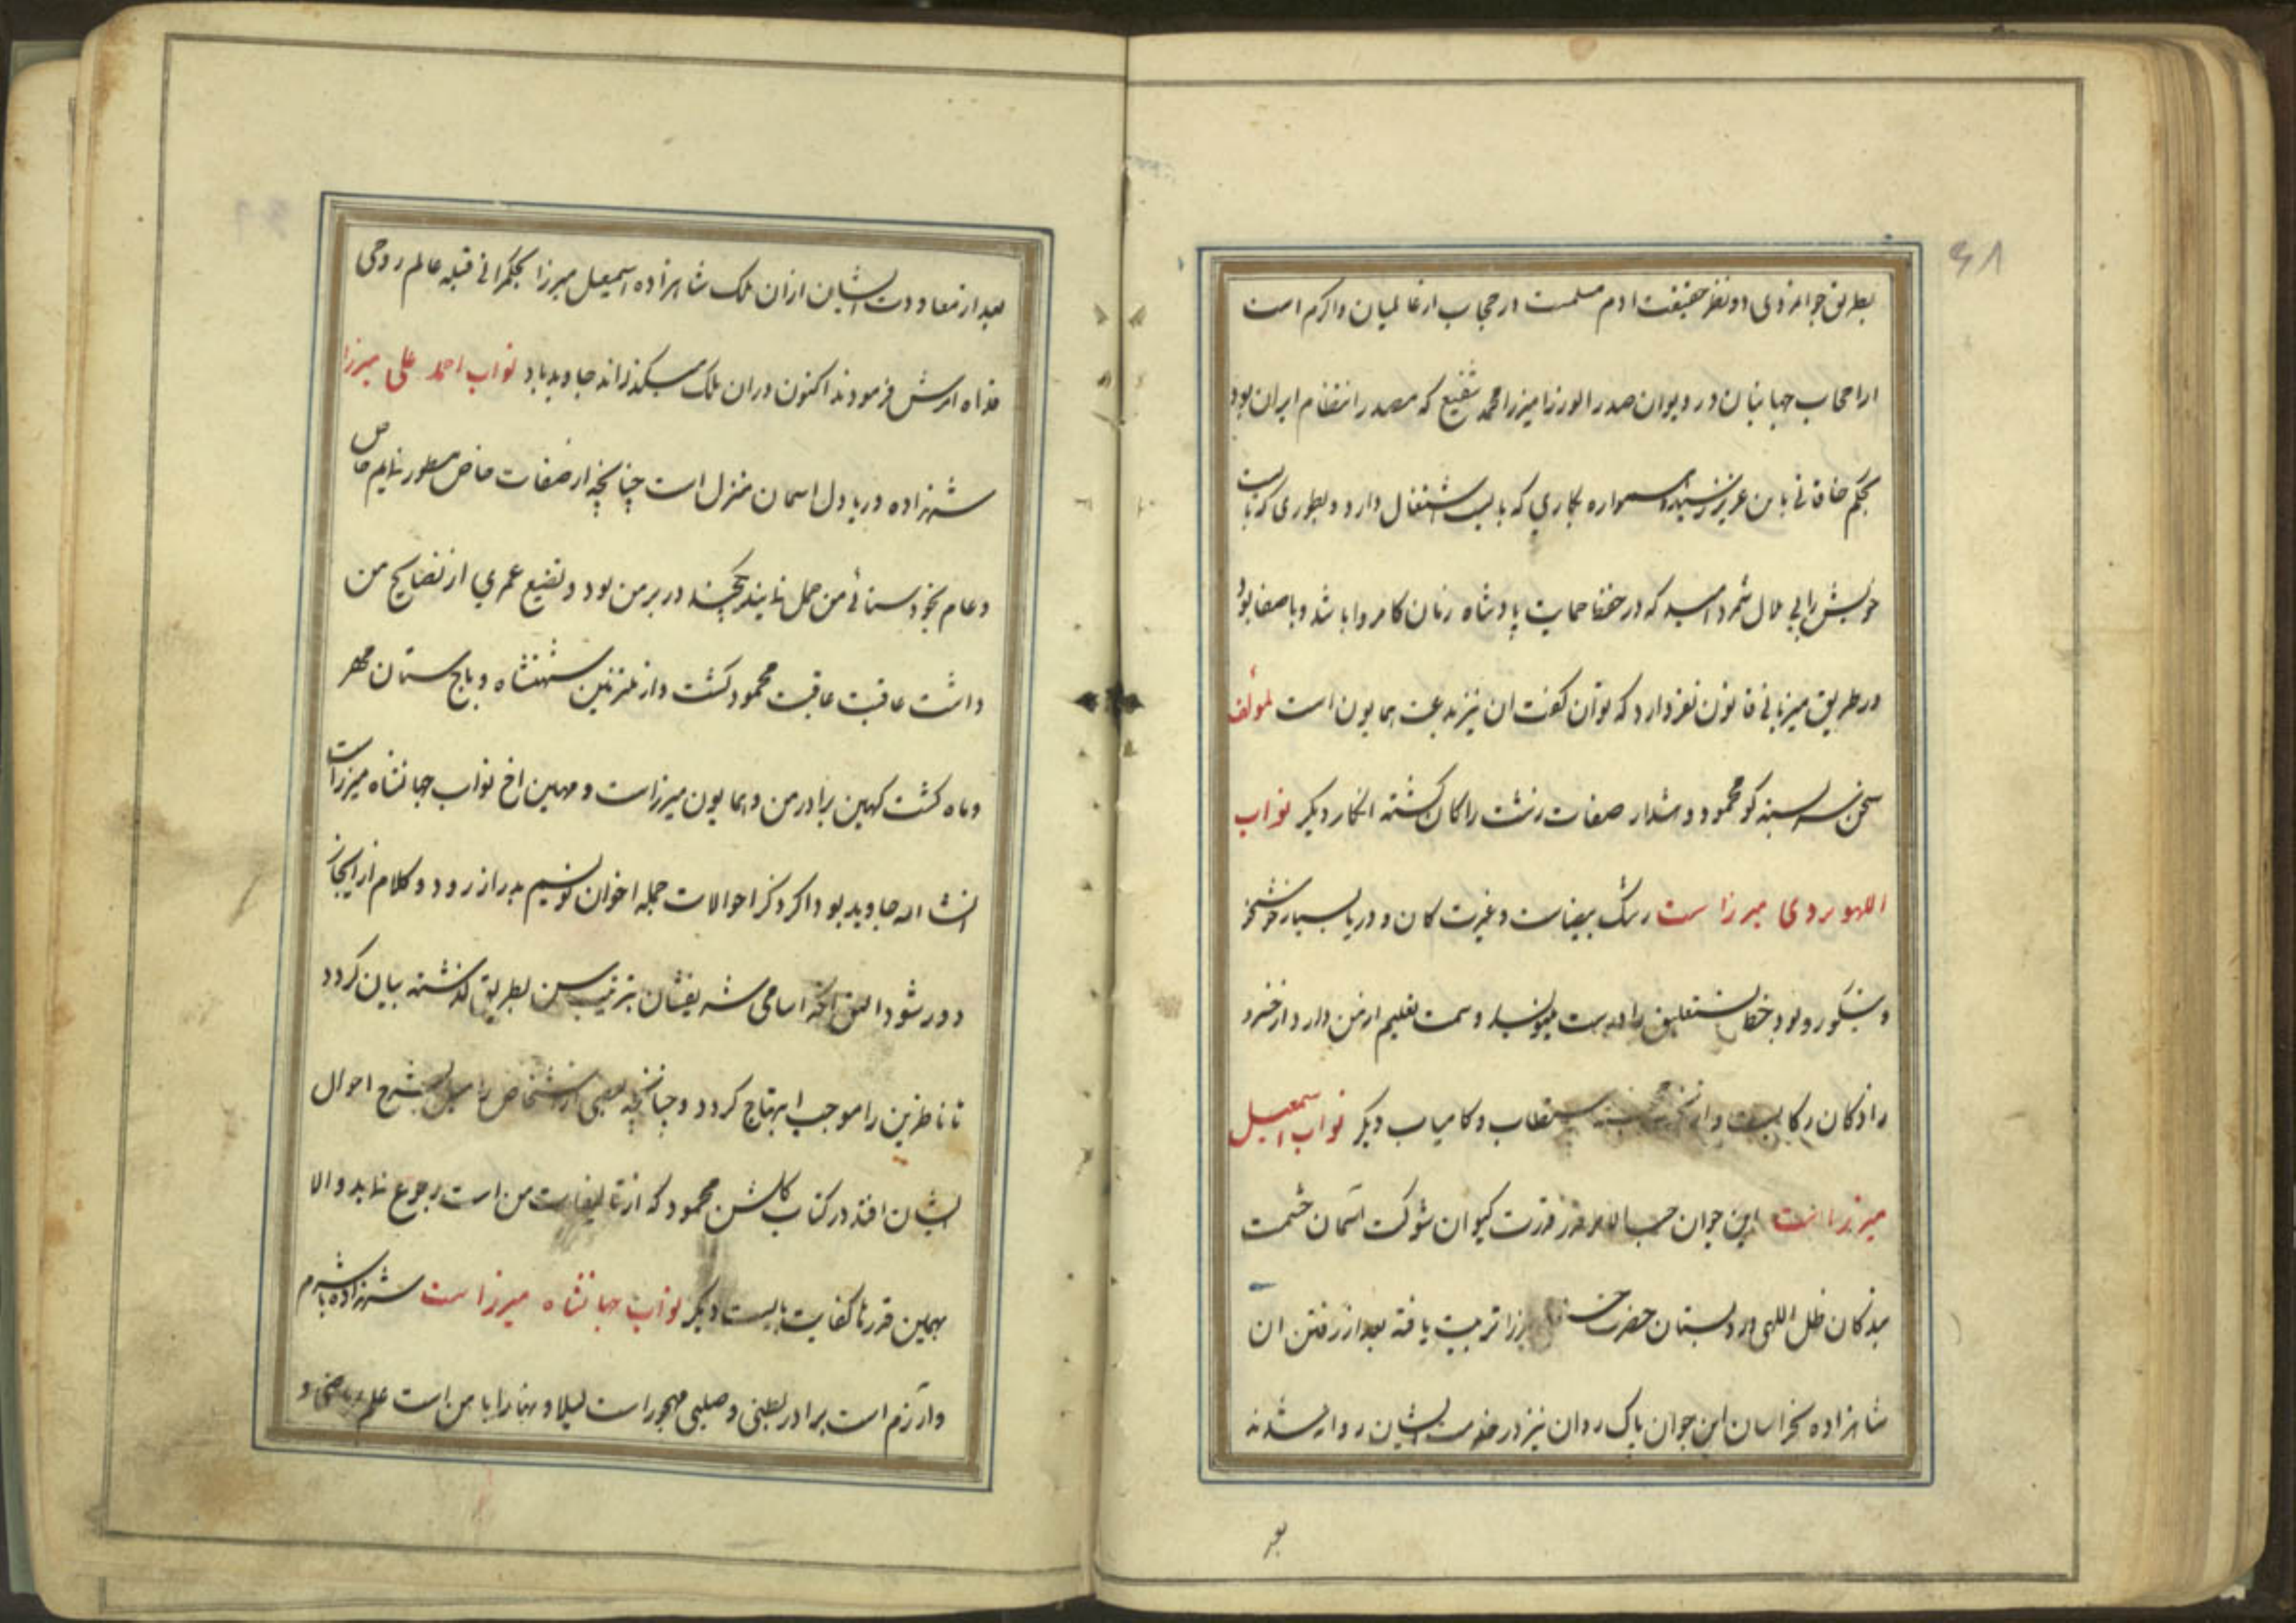 ۶۸
بطریق جوانمردی و ونظر حقیقت ادم مسلمست در حجاب از عالمیان واکرم است
ارا صحاب جهانبان در دیوان صدر الوزرا میرزا محمد شفیع که مصدر انتظام ایران بود
بحکم خاقانی با من عزیز همواره بکاری که باید اشتغال دارد وبطوری که
خویش رابی ملال شمرد امید که در خفا حمایت پادشاه زمان کامروا باشد وباصفا بود
در طریق میزبانی قانون نغز دارد که توان کفت ان نیز بدعت همایون است لمولفه
سخن سربسته کو محمود و مشدار صفات زشت را کان کشته انکار دیکر نواب
اللهوردی میرزا ست رشک بیضاست وغیرت کان و دریا بسیار خوشخو
ونیکو رو بود خط نستعلیق را درست مینویسد وسمت تعلیم از من دارد از خنرو
رادکان رکابست واز مستطاب وکامیاب دیکر نواب اسمعیل
میرزا است این جوان حسب الامر قدرت کیوان شوکت آسمان حشمت
بندکان ظل اللهی در دبستان حضرت میرزا تربیت یافته بعد از رفتن ان
شاهزاده بخراسان این جوان پاک روان نیز در خدمت ایشان روانه شدند
بعد
بعد از معاودت ایشان ازان ملک شاهزاده اسمعیل میرزا بحکمرانی قبله عالم روحی
فداه امرش فرمودند اکنون دران ملک میکذراند جاوید باد نواب احمد علی میرزا
شهزاده دریا دل اسمان منزل است چنانچه از صفات خاص مسطور نمایم خاص
وعام بخود ستائی من حمل نمایند در بر من بود وتضیع عمری از نصایح من
داشت عاقبت عاقبت محمود کشت واز مقربین شهنشاه وباج ستان مهر
وماه کشت کهین برادر من وهمایون میرزاست و مهین اخ نواب جهانشاه میرزاست
انشاء الله جاوید بود اکر ذکر احوالات جمله اخوان نویسم بدراز رود وکلام از ایجاز
دور شود الیق انکه اسامی شریفشان بترتیب سن بطریق کذشته بیان کردد
تا ناظرین را موجب ابتهاج کردد وچنانچه بعضی از اشخاص را میل بشرح احوال
ایشان افتد در کتاب کلشن محمود که از تالیفات من است رجوع نماید والا
بهمین قدرها کفایت بایست دیکر نواب جهانشاه میرزا ست شهزاده باشرم
وآرزم است برادر بطنی وصلبی مهجور است لیلا ونهارا با من است علم ریاضی و